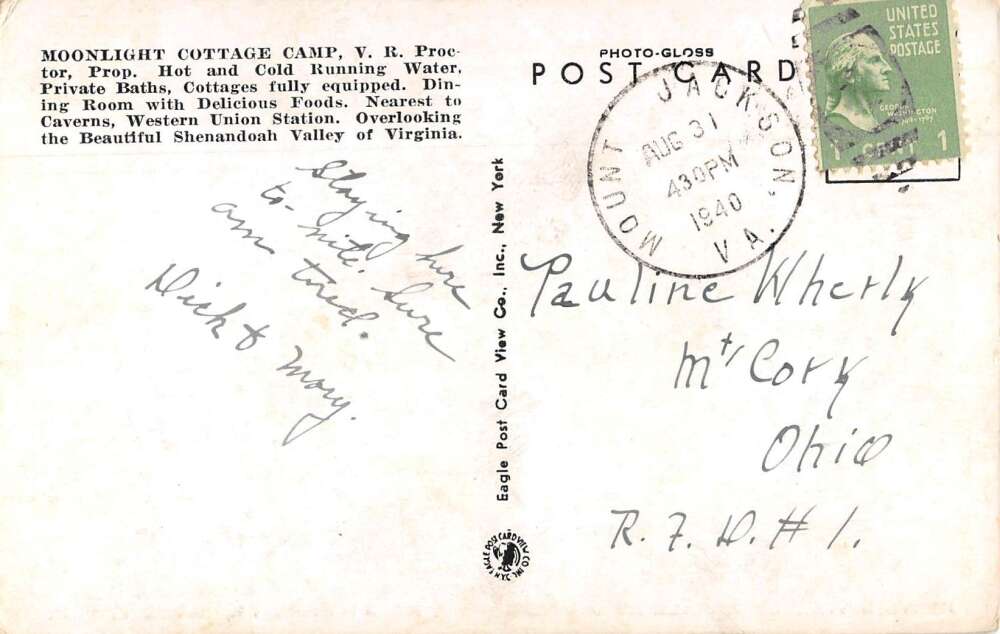 MOONLIGHT COTTAGE CAMP, V. R. Proc-
tor, Prop. Hot and Cold Running Water,
Private Baths, Cottages fully equipped. Din-
ing Room with Delicious Foods. Nearest to
Caverns, Western Union Station. Overlooking
the Beautiful Shenandoah Valley of Virginia.
Staying here
to-nite. Sure
am tired.
Dick & Mary.
Eagle Post Card View Co., Inc., New York
AN EAGLE POST CARD VIEW CO. INC.
PHOTO-GLOSS
POST CARD
MOUNT JACKSON, VA.
AUG 31
430PM
1940
UNITED
STATES
POSTAGE
GEORGE
WASHINGTON
1 CENT 1
Pauline Wherly
Mt Cory
Ohio
R. F. D. # 1.